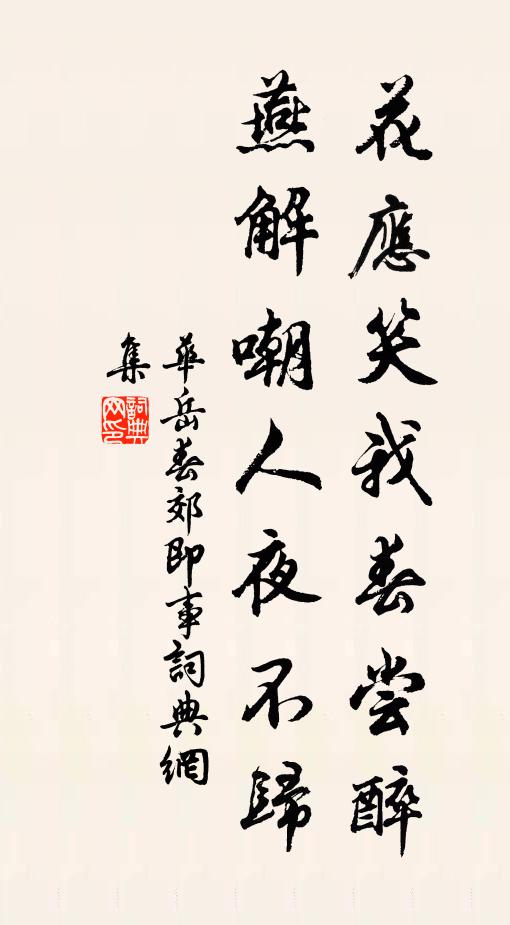 花應笑我春尝醉
燕解嘲人夜不歸
華岳春郊即事詞典網
集
詞典
网印